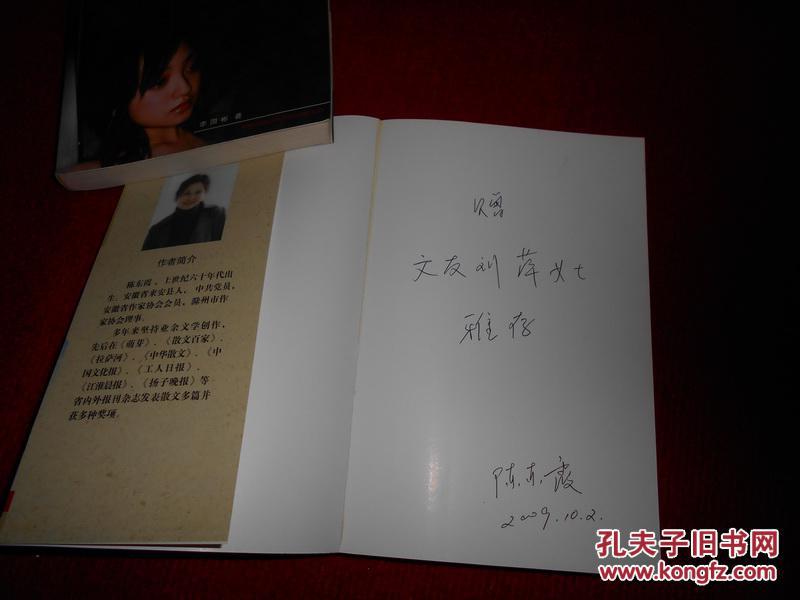 李国彬 著
作者简介
陈东霞，上世纪六十年代出
生，安徽省来安县人，中共党员，
安徽省作家协会会员，滁州市作
家协会理事。
多年来坚持业余文学创作，
先后在《萌芽》、《散文百家》、
《拉萨河》、《中华散文》、《中
国文化报》、《工人日报》、
《江淮晨报》、《扬子晚报》等
省内外报刊杂志发表散文多篇并
获多种奖项。
赠
文友刘萍女士
雅存
陈东霞
2009.10.2.
孔夫子旧书网
www.kongfz.com